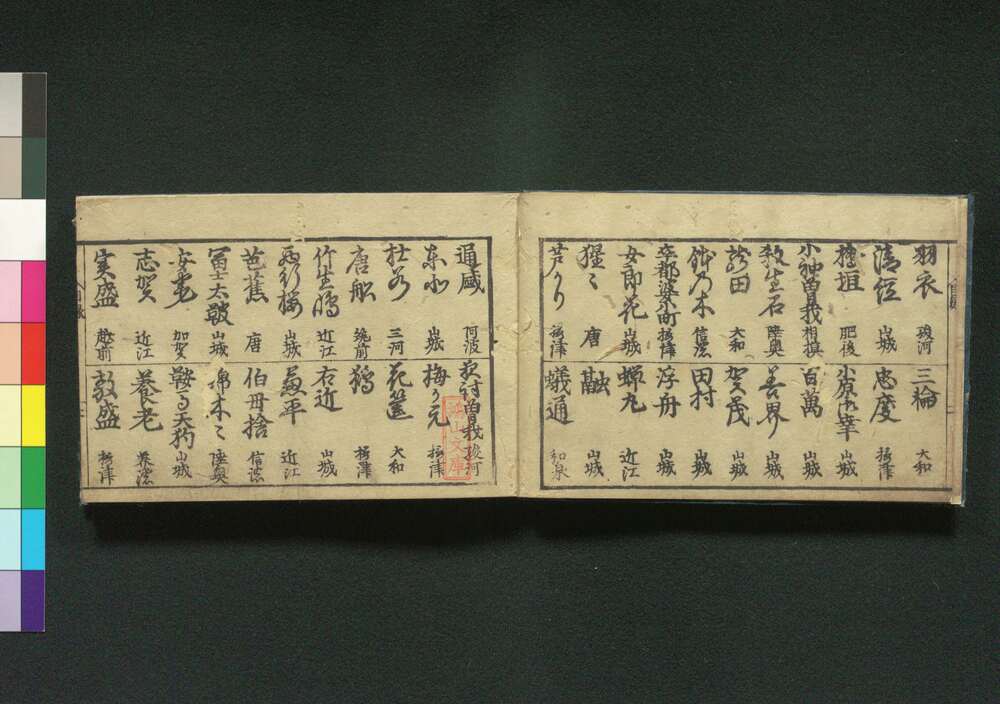 羽衣 駿河 三輪 大和
清経 山城 忠度 摂津
檜垣 肥後 小原御幸 山城
小袖曽我 相模 百萬 山城
殺生石 陸奥 善界 山城
龍田 大和 賀茂 山城
鉢乃木 信濃 田村 山城
卒都婆小町 摂津 浮舟 山城
女郎花 山城 蝉丸 近江
猩々 唐 融 山城
芦かり 摂津 蟻通 和泉
通盛 阿波 夜討曽我 駿河
東北 山城 梅か元 摂津
杜若 三河 花筐 大和
唐船 筑前 鵺 摂津
竹生嶋 近江 右近 山城
西行桜 山城 兼平 近江
芭蕉 唐 伯母捨 信濃
冨士太皷 山城 錦木々 陸奥
安宅 加賀 鞍馬天狗 山城
志賀 近江 養老 美濃
実盛 越前 敦盛 摂津
目録